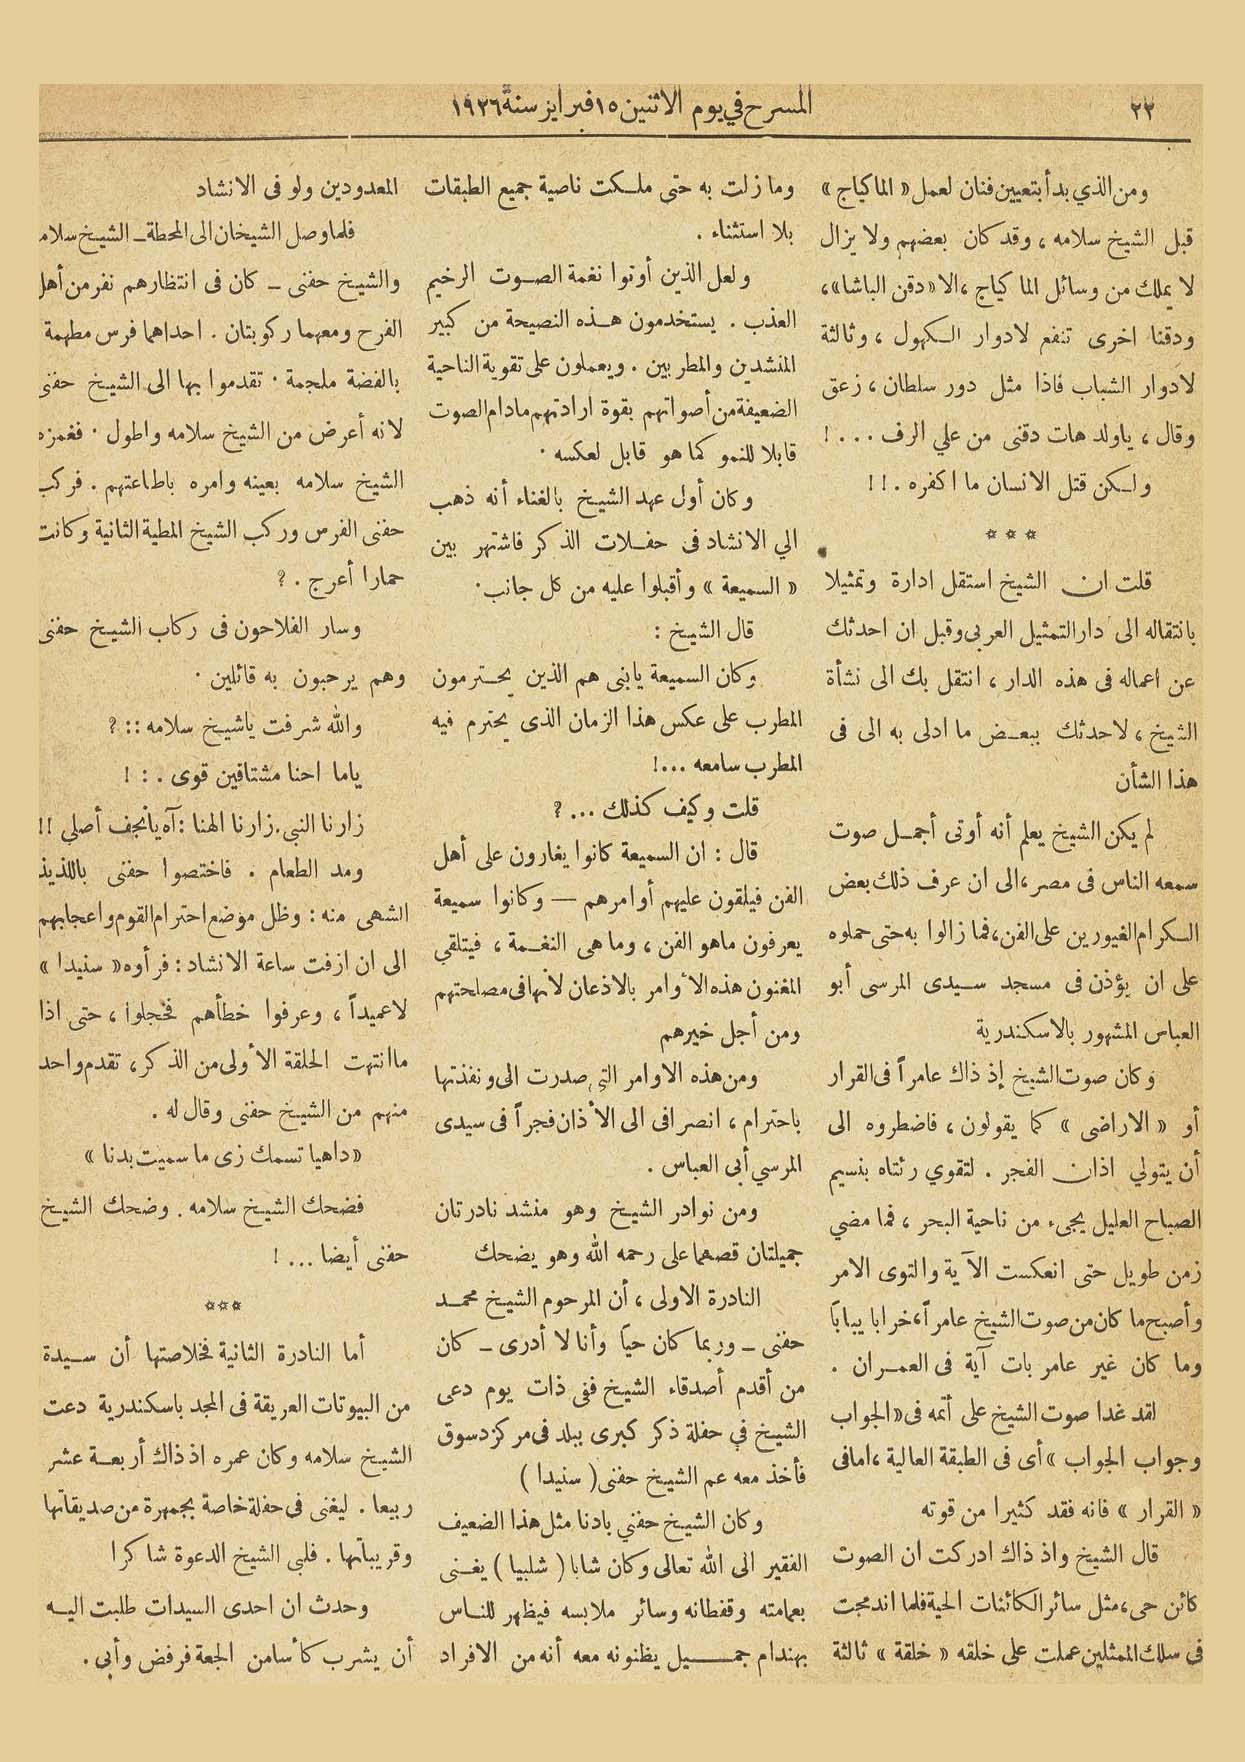 ٢٢
المسرح في يوم الاثنين ١٥ فبراير سنة ١٩٢٦
ومن الذي بدأ بتعيين فنان لعمل « الماكياج »
قبل الشيخ سلامه ، وقد كان بعضهم ولا يزال
لا يملك من وسائل الماكياج ، الا « دقن الباشا » ،
ودقنا اخرى تنفع لادوار الكهول ، وثالثة
لادوار الشباب فاذا مثل دور سلطان ، زعق
وقال ، ياولد هات دقنى من علي الرف . . . !
ولكن قتل الانسان ما اكفره . ! !
* * *
قلت ان الشيخ استقل ادارة وتمثيلا
بانتقاله الى دار التمثيل العربى وقبل ان احدثك
عن اعماله فى هذه الدار ، انتقل بك الى نشأة
الشيخ ، لاحدثك ببعض ما ادلى به الى فى
هذا الشأن
لم يكن الشيخ يعلم أنه أوتى أجمل صوت
سمعه الناس فى مصر ، الى ان عرف ذلك بعض
الكرام الغيورين على الفن ، فما زالوا به حتى حملوه
على ان يؤذن فى مسجد سيدى المرسى أبو
العباس المشهور بالاسكندرية
وكان صوت الشيخ إذ ذاك عامراً فى القرار
أو « الاراضى » كما يقولون ، فاضطروه الى
أن يتولي اذان الفجر . لتقوي رئتاه بنسيم
الصباح العليل يجىء من ناحية البحر ، فما مضي
زمن طويل حتى انعكست الآية والتوى الامر
وأصبح ما كان من صوت الشيخ عامراً ، خرابا يباباً
وما كان غير عامر بات آية فى العمران .
لقد غدا صوت الشيخ على أتمه فى « الجواب
وجواب الجواب » أى فى الطبقة العالية ، امافى
« القرار » فانه فقد كثيرا من قوته
قال الشيخ واذ ذاك ادركت ان الصوت
كائن حى ، مثل سائر الكائنات الحية فلما اندمجت
فى سلك الممثلين عملت على خلقه « خلقة » ثالثة
وما زلت به حتى ملكت ناصية جميع الطبقات
بلا استثناء .
ولعل الذين أوتوا نغمة الصوت الرخيم
العذب . يستخدمون هذه النصيحة من كبير
المنشدين والمطربين . ويعملون على تقوية الناحية
الضعيفة من أصواتهم بقوة ارادتهم مادام الصوت
قابلا للنمو كما هو قابل لعكسه .
وكان أول عهد الشيخ بالغناء أنه ذهب
الي الانشاد فى حفلات الذكر فاشتهر بين
« السميعة » وأقبلوا عليه من كل جانب .
قال الشيخ :
وكان السميعة يابنى هم الذين يحترمون
المطرب على عكس هذا الزمان الذى يحترم فيه
المطرب سامعه ...!
قلت وكيف كذلك ... ؟
قال : ان السميعة كانوا يغارون على أهل
الفن فيلقون عليهم أوامرهم — وكانوا سميعة
يعرفون ماهو الفن ، وما هى النغمة ، فيتلقي
المغنون هذه الأوامر بالاذعان لأنها فى مصلحتهم
ومن أجل خيرهم
ومن هذه الاوامر التي صدرت الى ونفذتها
باحترام ، انصرافى الى الأذان فجراً فى سيدى
المرسي أبى العباس .
ومن نوادر الشيخ وهو منشد نادرتان
جميلتان قصهما على رحمه الله وهو يضحك
النادرة الاولى ، أن المرحوم الشيخ محمد
حفنى ــ وربما كان حياً وأنا لا أدرى ــ كان
من أقدم أصدقاء الشيخ ففى ذات يوم دعى
الشيخ في حفلة ذكر كبرى ببلد فى مركز دسوق
فأخذ معه عم الشيخ حفنى ( سنيدا )
وكان الشيخ حفني بادنا مثل هذا الضعيف
الفقير الى الله تعالى وكان شابا ( شلبيا ) يغنى
بعمامته وقفطانه وسائر ملابسه فيظهر للناس
بهندام جميل يظنونه معه أنه من الافراد
المعدودين ولو فى الانشاد
فلما وصل الشيخان الى المحطة ــ الشيخ سلامه
والشيخ حفنى ــ كان فى انتظارهم نفر من أهل
الفرح ومعهما ركوبتان . احداهما فرس مطهمة
بالفضة ملحمة . تقدموا بها الى الشيخ حفنى
لانه أعرض من الشيخ سلامه واطول . فغمزه
الشيخ سلامه بعينه وامره باطاعتهم . فركب
حفنى الفرس وركب الشيخ المطية الثانية وكانت
حمارا أعرج . ؟
وسار الفلاحون فى ركاب الشيخ حفنى
وهم يرحبون به قائلين .
والله شرفت ياشيخ سلامه : : ؟
ياما احنا مشتاقين قوى . : !
زارنا النبى . زارنا الهنا : آه يانجف أصلي ! !
ومد الطعام . فاختصوا حفنى باللذيذ
الشهى منه : وظل موضع احترام القوم واعجابهم
الى ان ازفت ساعة الانشاد : فرأوه « سنيدا »
لاعميداً ، وعرفوا خطأهم فخجلوا ، حتى اذا
ماانتهت الحلقة الأولى من الذكر ، تقدم واحد
منهم من الشيخ حفنى وقال له .
« داهيا تسمك زى ما سميت بدنا »
فضحك الشيخ سلامه . وضحك الشيخ
حفنى أيضا ... !
***
أما النادرة الثانية فخلاصتها أن سيدة
من البيوتات العريقة فى المجد باسكندرية دعت
الشيخ سلامه وكان عمره اذ ذاك أربعة عشر
ربيعا . ليغنى فى حفلة خاصة بجمهرة من صديقاتها
وقريباتها . فلبى الشيخ الدعوة شاكرا
وحدث ان احدى السيدات طلبت اليه
أن يشرب كأسا من الجعة فرفض وأبي .